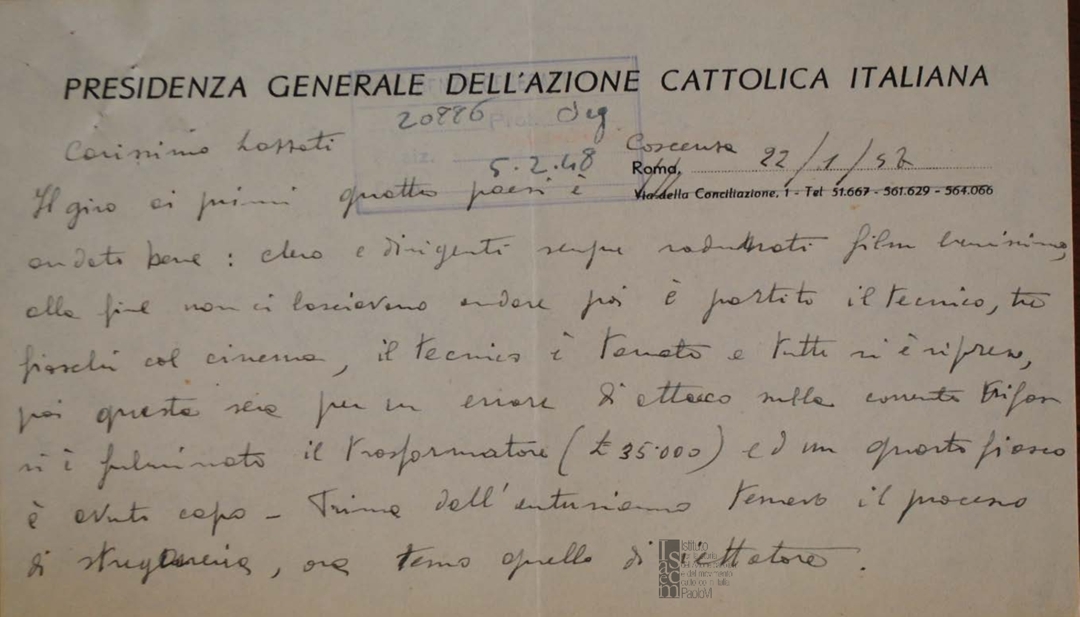 PRESIDENZA GENERALE DELL'AZIONE CATTOLICA ITALIANA
20886 Org
5.2.48
Carissimo Lazzati
Cosenza 22/1/
Roma,
Via della Conciliazione, 1 - Tel 51.667 - 561.629 - 564.066
Il giro ai primi quattro paesi è
andato bene: clero e dirigenti sempre radunati film benissimo,
alla fine non ci lasciavano andare poi è partito il tecnico, tre
fiaschi col cinema, il tecnico è tornato e tutto si è ripreso,
poi questa sera per un errore di attacco sulla corrente trifase
si è fulminato il trasformatore (£ 35.000) ed un quarto fiasco
è avuto capo - Prima dall'entusiasmo temevo il processo
di stregoneria, ora temo quello di iettatore.
Istituto
Paolo VI